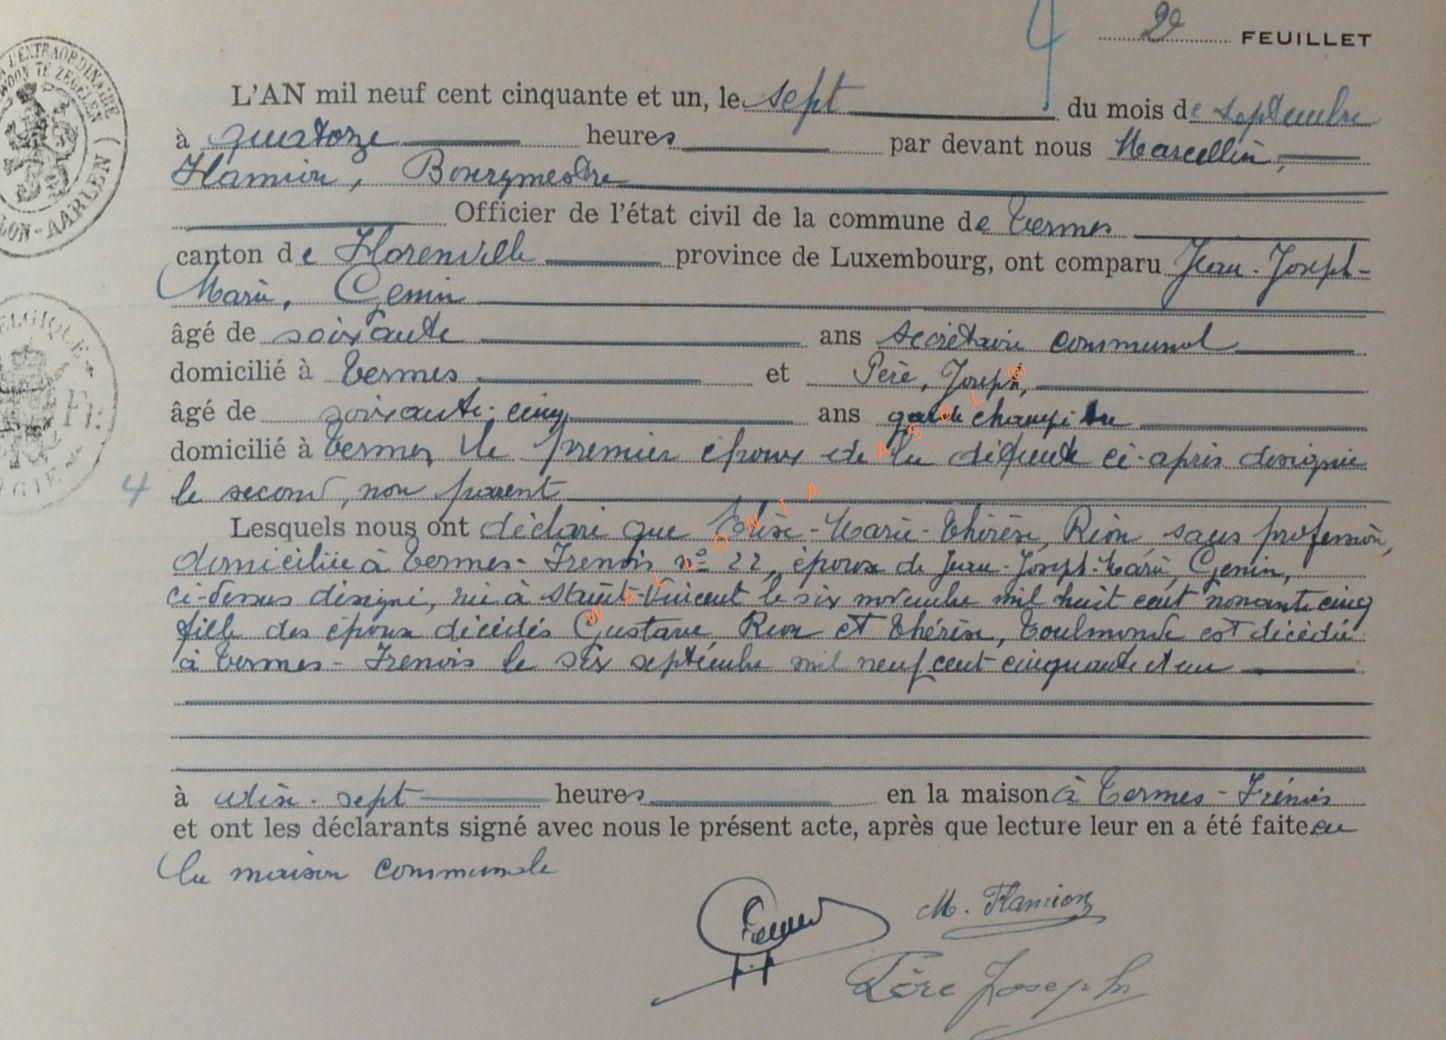 2e FEUILLET
4
L'AN mil neuf cent cinquante et un, le sept du mois de septembre
à quatorze heures par devant nous Marcellin,
Hamion, Bourgmestre
Officier de l'état civil de la commune de Termes
canton de Florenville province de Luxembourg, ont comparu Jean-Joseph-
Marie, Genin
âgé de soixante ans secrétaire communal
domicilié à Termes et Père, Joseph,
âgé de soixante-cinq ans garde champêtre
domicilié à Termes, le premier époux de la défunte ci-après désignée
4 le second, non parent
Lesquels nous ont déclaré que Elise-Marie-Thérèse, Rion, sans profession,
domiciliée à Termes-Frenois n° 22, épouse de Jean-Joseph-Marie, Genin,
ci-dessus désigné, née à Saint-Vincent le six novembre mil huit cent nonante cinq
fille des époux décédés Gustave Rion et Thérèse, Toulmonde est décédée
à Termes-Frenois le six septembre mil neuf cent cinquante et un
à dix-sept heures en la maison à Termes-Frénois
et ont les déclarants signé avec nous le présent acte, après que lecture leur en a été faite en
la maison communale
Genin
Père Joseph
WALLONIA ASBL ®
EXTRAORDINAIRE
ARLON-AARLEN
BELGIQUE
Fr.
BELGIE